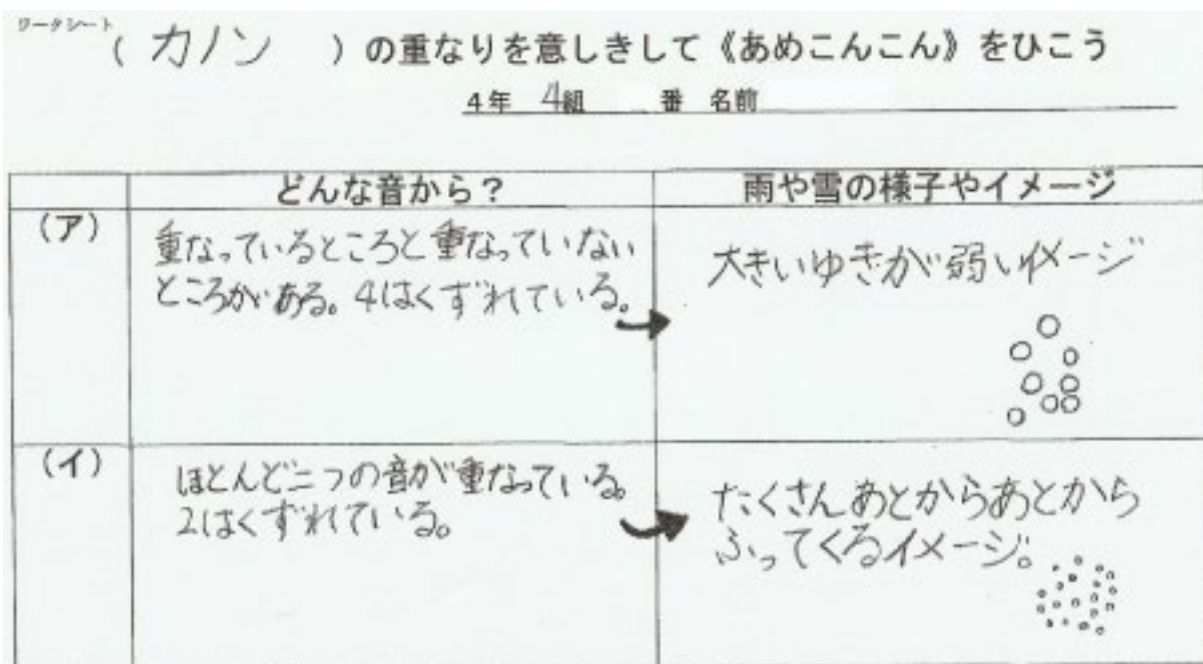 ワークシート
( カノン ) の重なりを意しきして《あめこんこん》をひこう
4年 4組 番 名前
どんな音から?
雨や雪の様子やイメージ
(ア)
重なっているところと重なっていない
ところがある。4はくずれている。
大きいゆきが弱いイメージ
(イ)
ほとんど二つの音が重なっている。
2はくずれている。
たくさんあとからあとから
ふってくるイメージ。